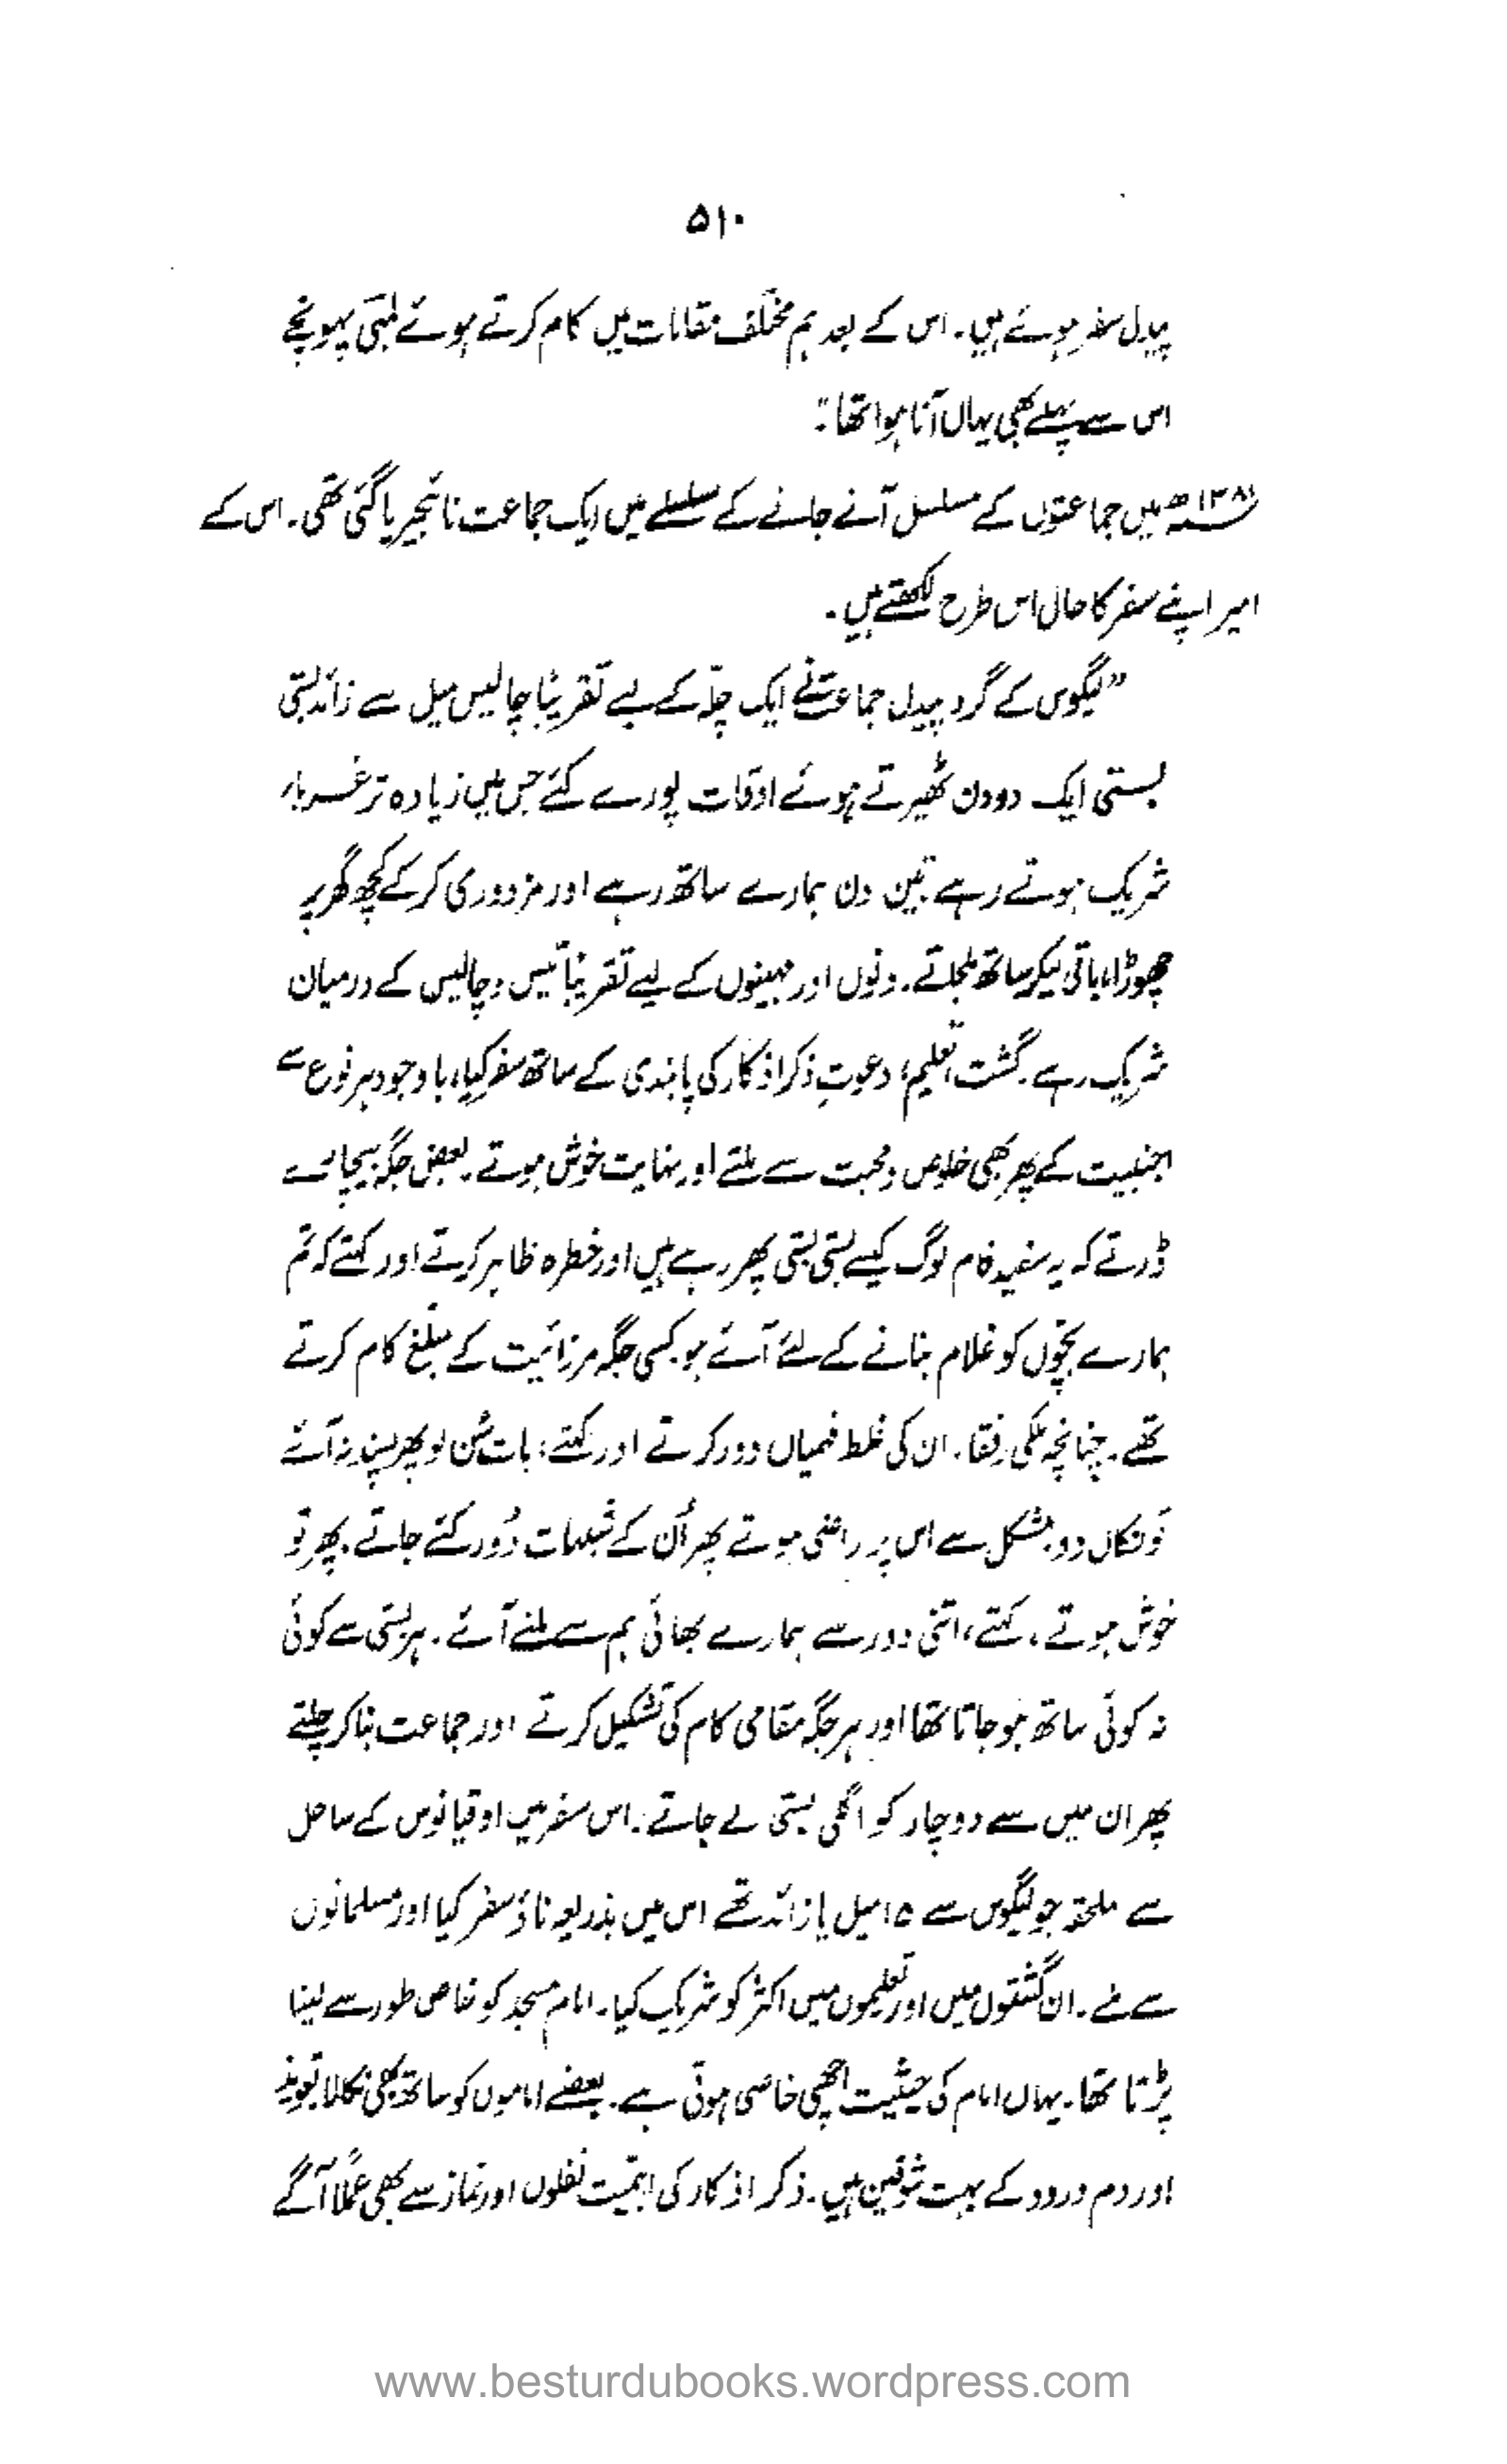 ۵۱۰
پیدل سفر ہوئے ہیں۔ اس کے بعد ہم مختلف مقامات میں کام کرتے ہوئے پہونچے
اس سے پہلے بھی یہاں آنا ہوا تھا۔"
۱۳۸۱ھ میں جماعتوں کے مسلسل آنے جانے کے سلسلے میں ایک جماعت نائیجیریا گئی تھی۔ اس کے
امیر اپنے سفر کا حال اس طرح لکھتے ہیں۔
"لیگوس کے گرد پیدل جماعت نے ایک چلّہ کے لیے تقریباً چالیس میل سے زائد بستی
بستی ایک دو دن ٹھیرتے ہوئے اوقات پورے کئے جس میں زیادہ تر غربار
شریک ہوتے رہے تین دن ہمارے ساتھ رہے اور مزدوری کرکے کچھ گھر پر
چھوڑا، باقی لیکر ساتھ ملجاتے۔ دنوں اور مہینوں کے لیے تقریباً تیس و چالیس کے درمیان
شریک رہے۔ گشت، تعلیم، دعوت ذکر اذکار کی پابندی کے ساتھ سفر کیا، باوجود ہر نوع سے
اجنبیت کے پھر بھی خلوص و محبت سے ملتے اور نہایت خوش ہوتے۔ بعض جگہ بیچارے
ڈرتے کہ یہ سفید فام لوگ کیسے بستی بستی پھر رہے ہیں اور خطرہ ظاہر کرتے اور کہتے کہ تم
ہمارے بچّوں کو غلام بنانے کے لئے آئے ہو۔ کسی جگہ مرزائیت کے مبلغ کام کرتے
تھے۔ چنانچہ ملکی رفقا۔ ان کی غلط فہمیاں دور کرتے اور کہتے، بات سُن لو پھر پسند نہ آئے
تو نکال دو۔ مشکل سے اس پر راضی ہوتے پھر اُن کے شبہات دُور کئے جاتے۔ پھر تو
خوش ہوتے، کہتے، اتنی دور سے ہمارے بھائی ہم سے ملنے آئے۔ ہر بستی سے کوئی
نہ کوئی ساتھ ہو جاتا تھا اور ہر جگہ مقامی کام کی تشکیل کرتے اور جماعت بنا کر چلتے
پھر ان میں سے دو چار کو اگلی بستی لے جاتے۔ اس سفر میں اوقیانوس کے ساحل
سے ملحقہ جو لیگوس سے ۱۵ میل یا زائد تھے اس میں بذریعہ ناؤ سفر کیا اور مسلمانوں
سے ملے۔ ان گشتوں میں اور تعلیموں میں اکثر کو شریک کیا۔ امام مسجد کو خاص طور سے لینا
پڑتا تھا۔ یہاں امام کی حیثیت اچھی خاصی ہوتی ہے۔ بعضے اماموں کو ساتھ بھی نکالا تعویذ
اور دم درود کے بہت شوقین ہیں۔ ذکر اذکار کی اہمیّت نفلوں اور نماز سے بھی عملاً آگے
www.besturdubooks.wordpress.com